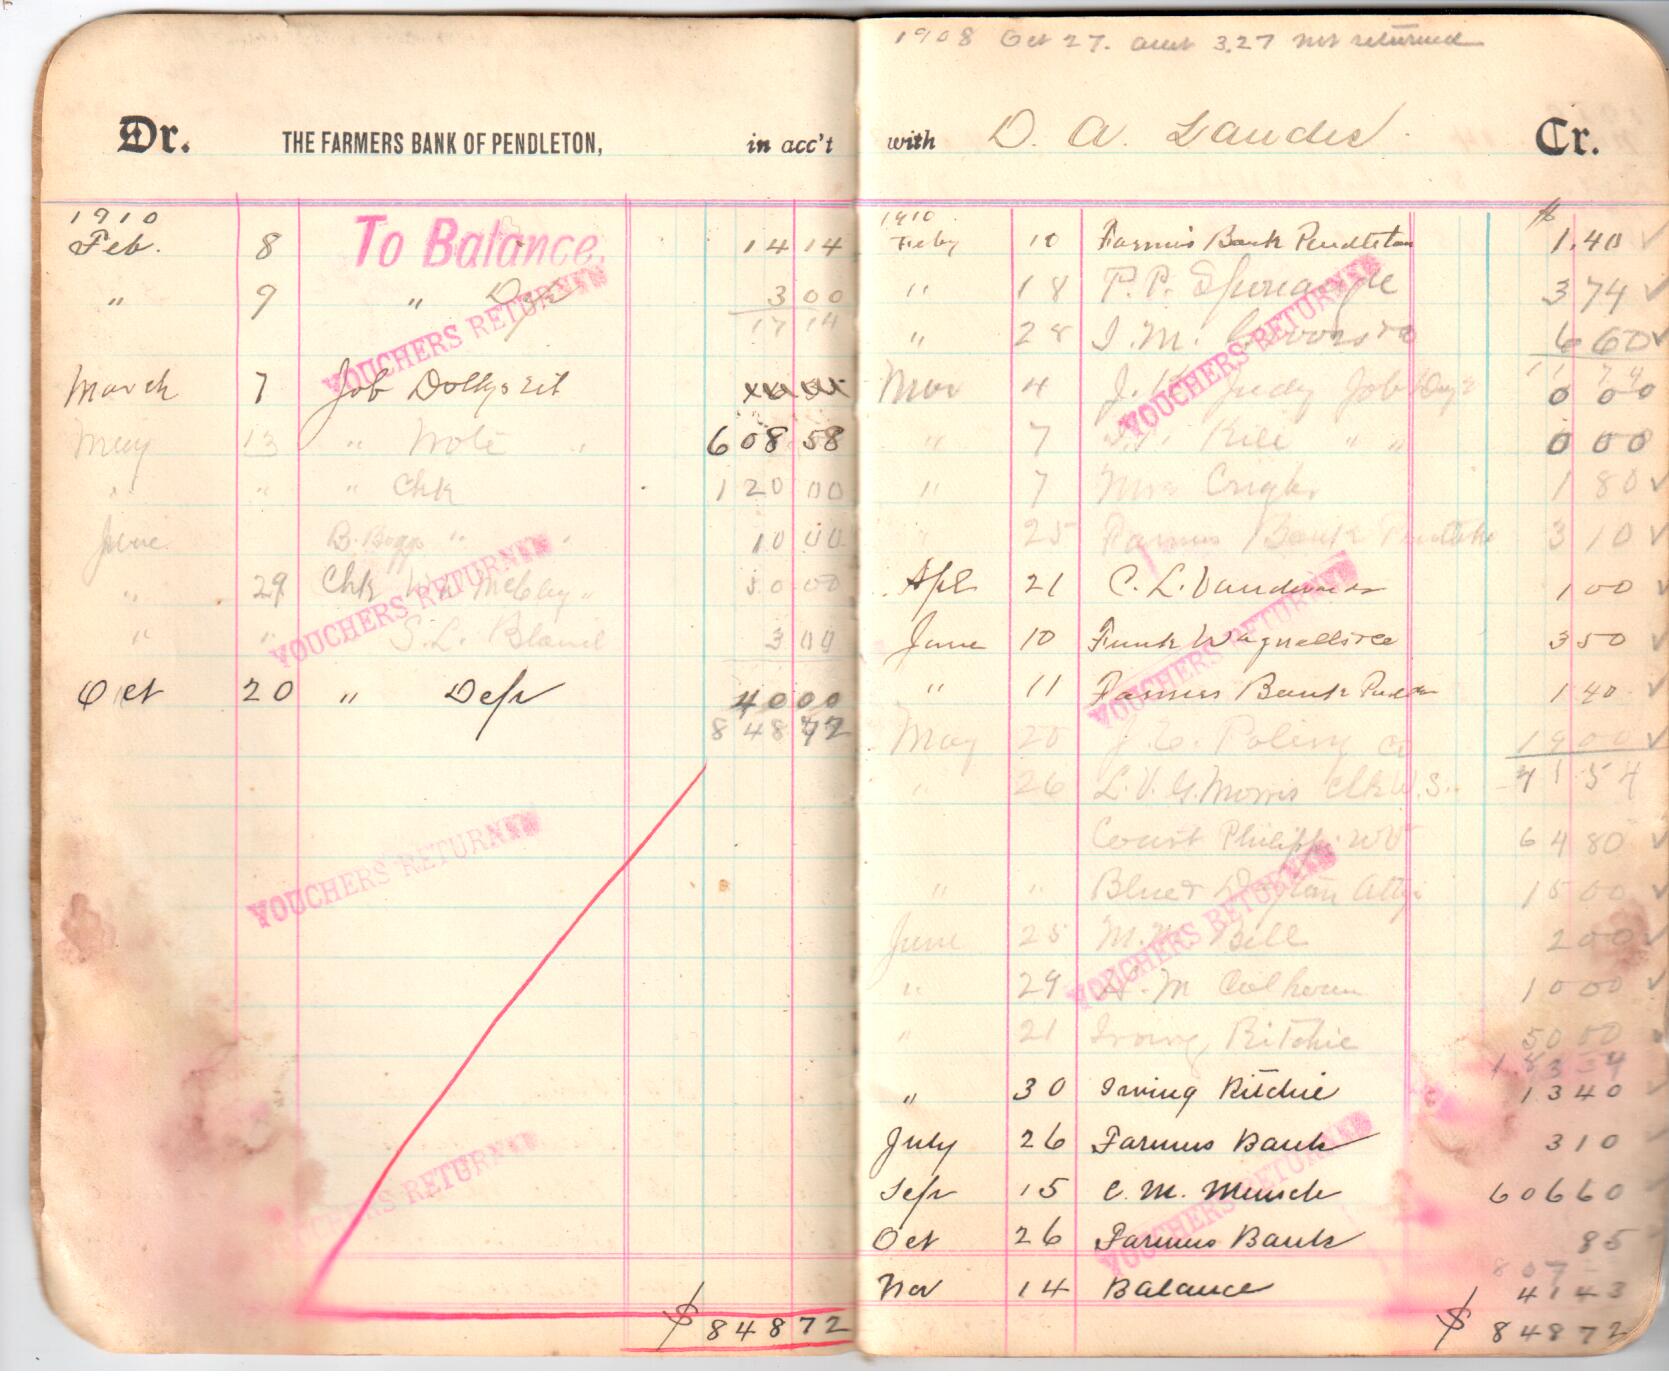 1908 Oct 27. amt 3.27 not returned
Dr. THE FARMERS BANK OF PENDLETON, in acc't
1910
Feb. 8 To Balance. 14 14
" 9 " Dep 3 00
17 14
VOUCHERS RETURNED
March 7 Job
May 13 " Note " 608 58
" " " Chk 120 00
June B. Boggs " " 10 00
" 29 Chk "
VOUCHERS RETURNED
" " S. L. Bland 3 00
Oct 20 " Dep 40 00
848 72
VOUCHERS RETURNED
VOUCHERS RETURNED
$ 848 72
with D. A. Landes. Cr.
1910. $
Feby 10 Farmers Bank Pendleton 1.40 ✓
" 18 P. P. 3 74 ✓
" 28 I. M. 6 60 ✓
VOUCHERS RETURNED
11 74
Mar 4 Judy Job 0 00
" 7 " " 0 00
" 7 1 80 ✓
" 25 Farmers Bank 3 10 ✓
Apl 21 C. L. 1 00 ✓
June 10 Funk Wagnalls &co 3 50 ✓
" 11 Farmers Bank 1 40 ✓
VOUCHERS RETURNED
May 20 19 00 ✓
41 54
" 26 L. V. G. Morris Clk U.S.
Court Philippi WV 64 80 ✓
" " Blue & Dayton Attys 15 00 ✓
June 25 Bell 2 00 ✓
VOUCHERS RETURNED
" 29 M Calhoun 10 00 ✓
" 21 Irving Ritchie 50 00
" 30 Irving Ritchie 13 40
July 26 Farmers Bank 3 10
VOUCHERS RETURNED
Sep 15 C. M. 606 60
Oct 26 Farmers Bank 85
807
Nov 14 Balance 41 43
$ 848 72